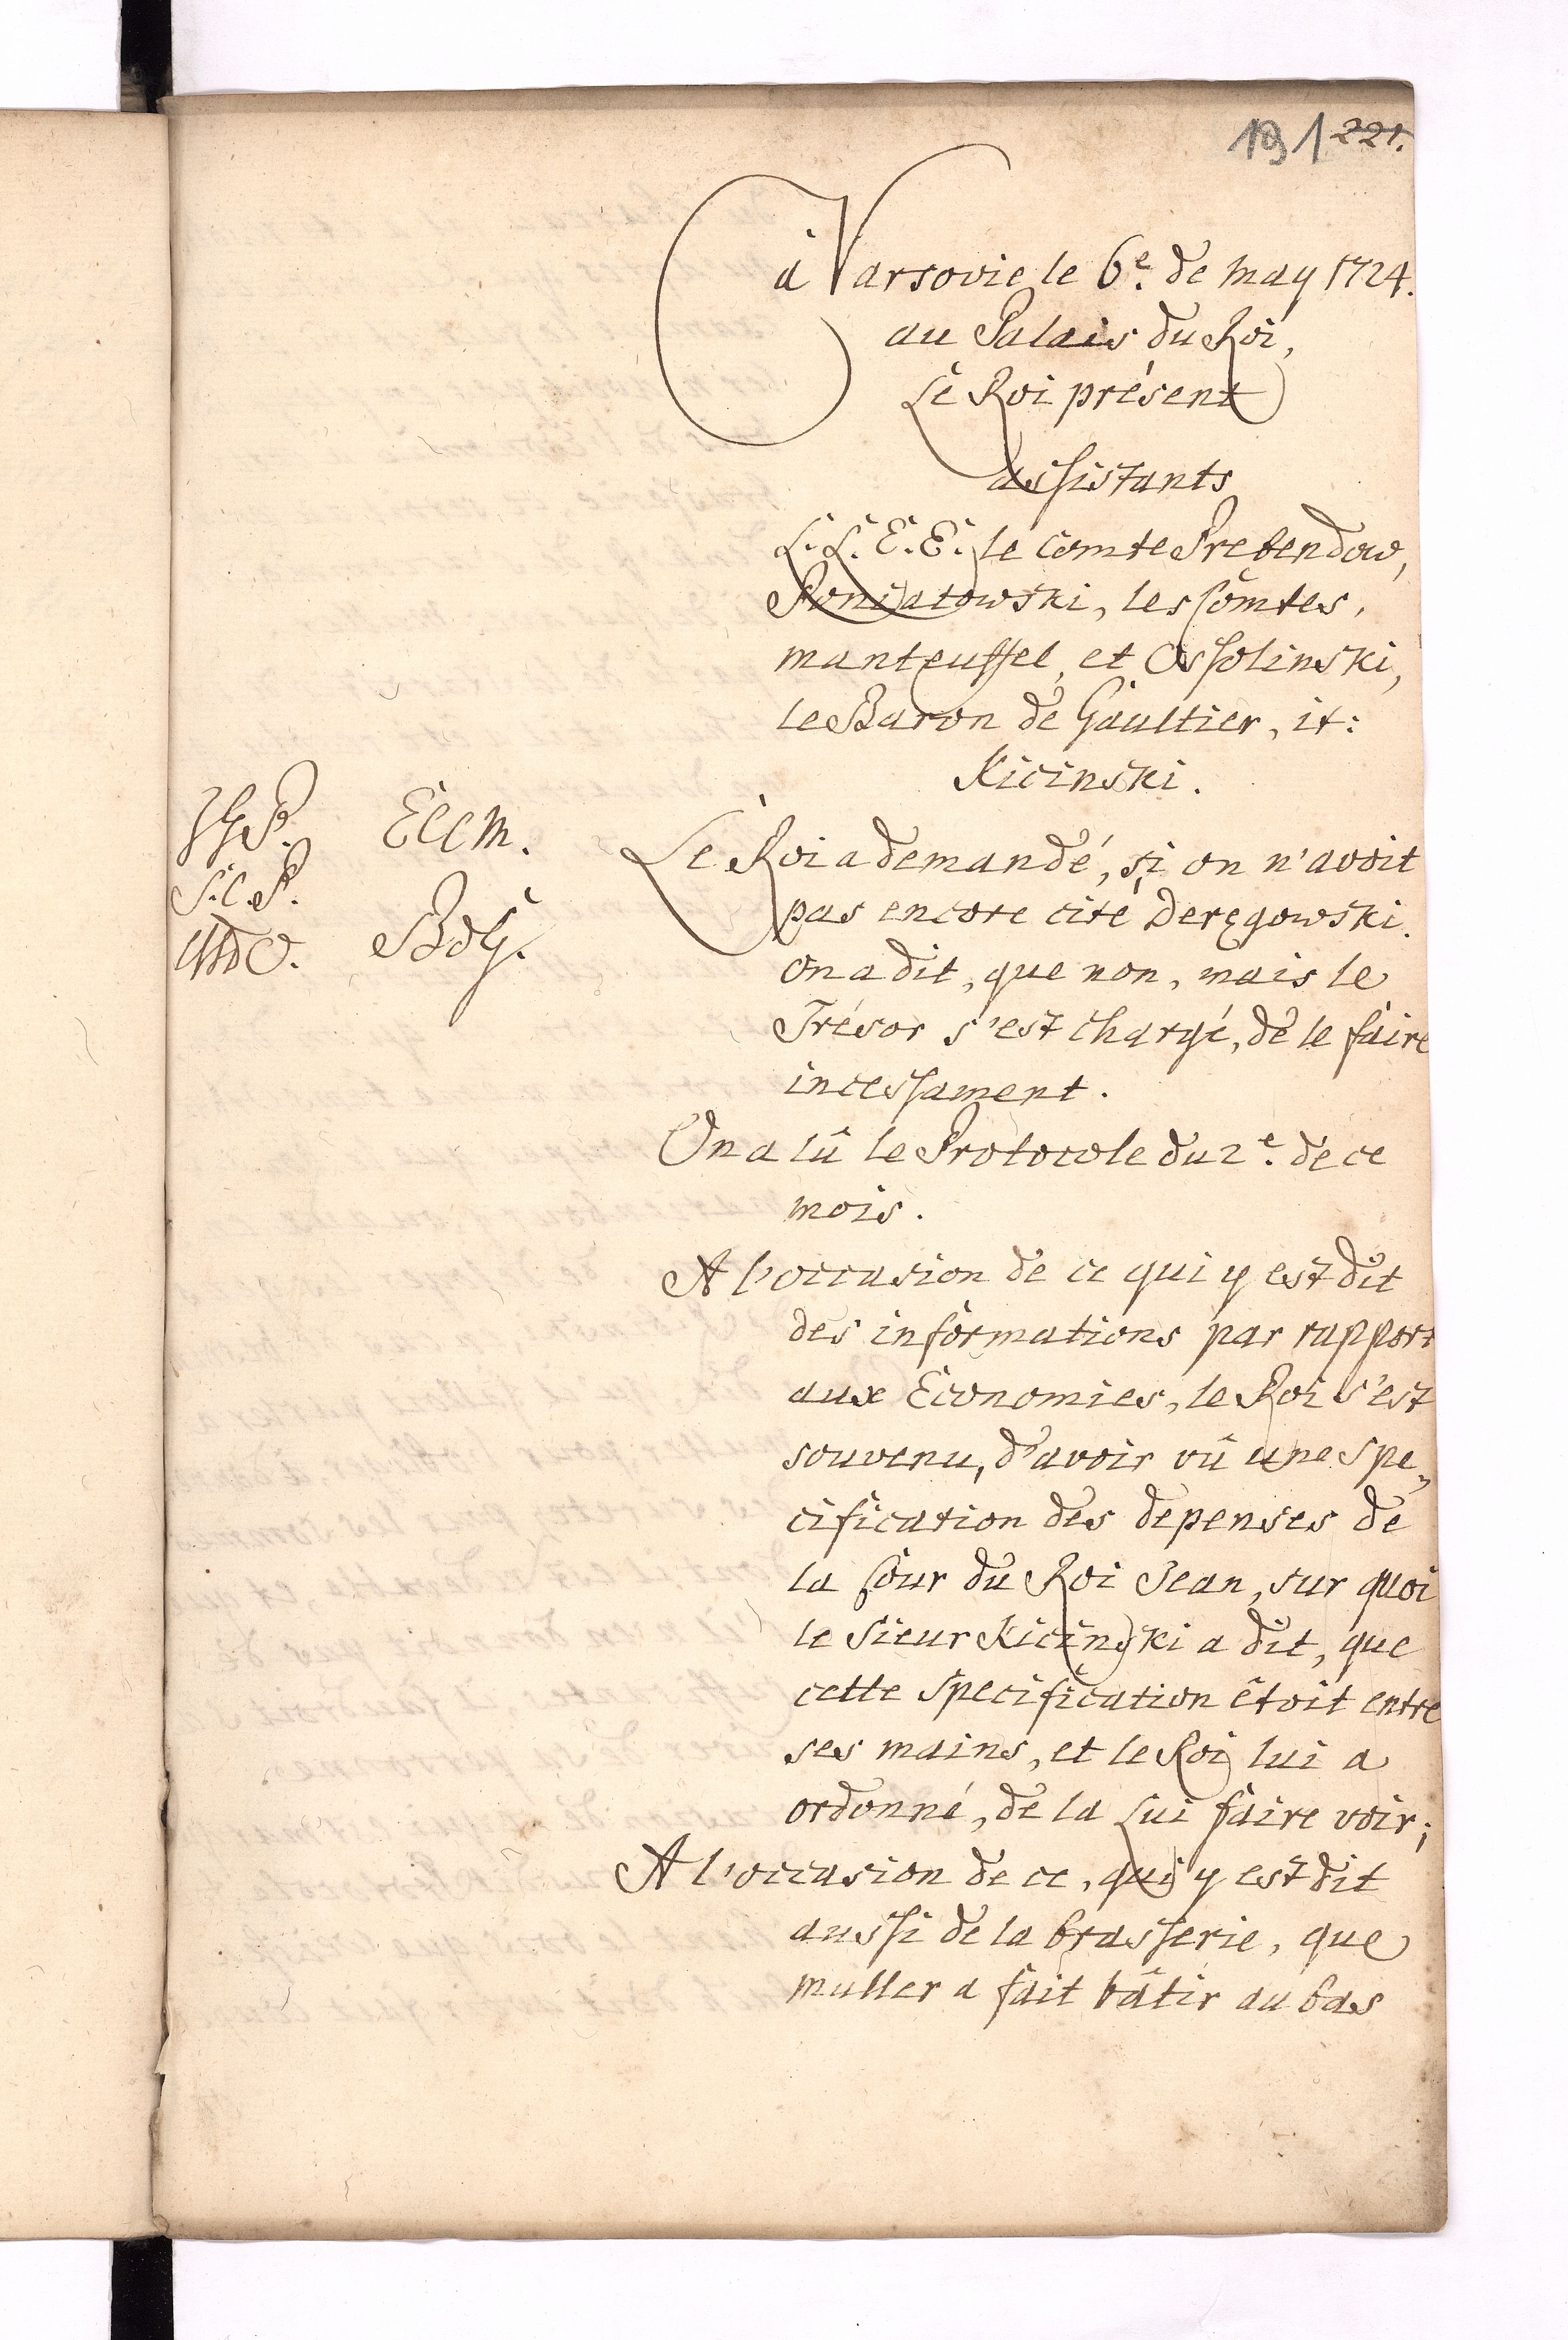 191 221.
à Varsovie le 6e. de may 1724.
au Palais du Roi,
Le Roi présent
assistants
L. L. E. E. le Comte Prebendow,
Poniatowski, les Comtes,
manteuffel, et Ossolinski,
le Baron de Gaultier, it:
Kicinski.
ECCM.
S.C.P.
BdG.
Le Roi a demandé, si on n'avoit
pas encore cité Deręgowski.
On a dit, que non, mais le
Trésor s'est chargé, de le faire
incessament.
On a lû le Protocole du 2e. de ce
mois.
A l'occasion de ce qui y est dit
des informations par rapport
aux Economies, le Roi s'est
souvenu, d'avoir vû une spe„
cification des depenses de
la Cour du Roi Jean, sur quoi
le Sieur Kicinski a dit, que
cette specification étoit entre
ses mains, et le Roi lui a
ordonné, de la Lui faire voir;
A l'occasion de ce, qui y est dit
aussi de la brasserie, que
muller a fait bâtir au bas